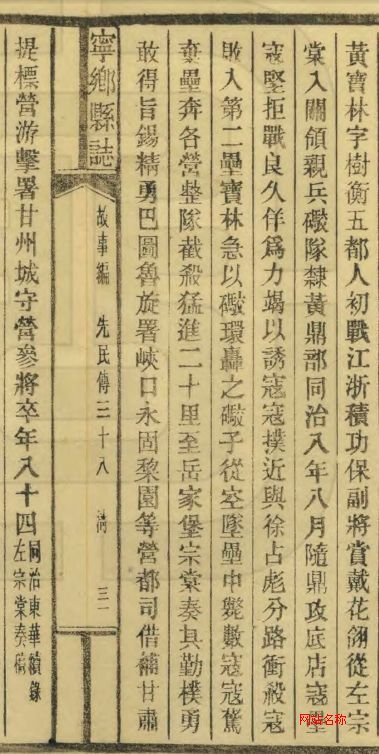 黃寶林字樹衡五都人初戰江浙積功保副將賞戴花翎從左宗
棠入關領親兵礮隊隸黃鼎部同治八年八月隨鼎攻底店寇壘
寇堅拒戰良久佯爲力竭以誘寇寇撲近與徐占彪分路衝殺寇
敗入第二壘寶林急以礮環轟之礮子從空墜壘中斃數寇寇驚
棄壘奔各營整隊截殺猛進二十里至岳家堡宗棠奏其勤樸勇
敢得旨錫精勇巴圖魯旋署峽口永固黎園等營都司借補甘肅
寧鄉縣誌
故事編 先民傳三十八 清 三一
提標營游擊署甘州城守營參將卒年八十四同治東華續錄
左宗棠奏稿
网站名称